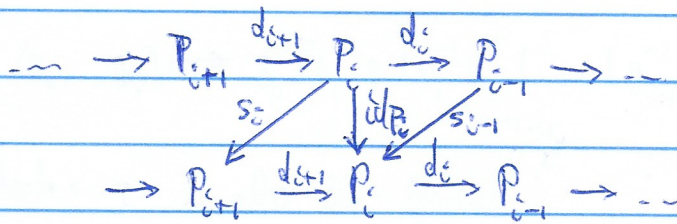 --- → P_{i+1} \xrightarrow{d_{i+1}} P_i \xrightarrow{d_i} P_{i-1} → ---
s_i id_{P_i} s_{i-1}
→ P_{i+1} \xrightarrow{d_{i+1}} P_i \xrightarrow{d_i} P_{i-1} → ---